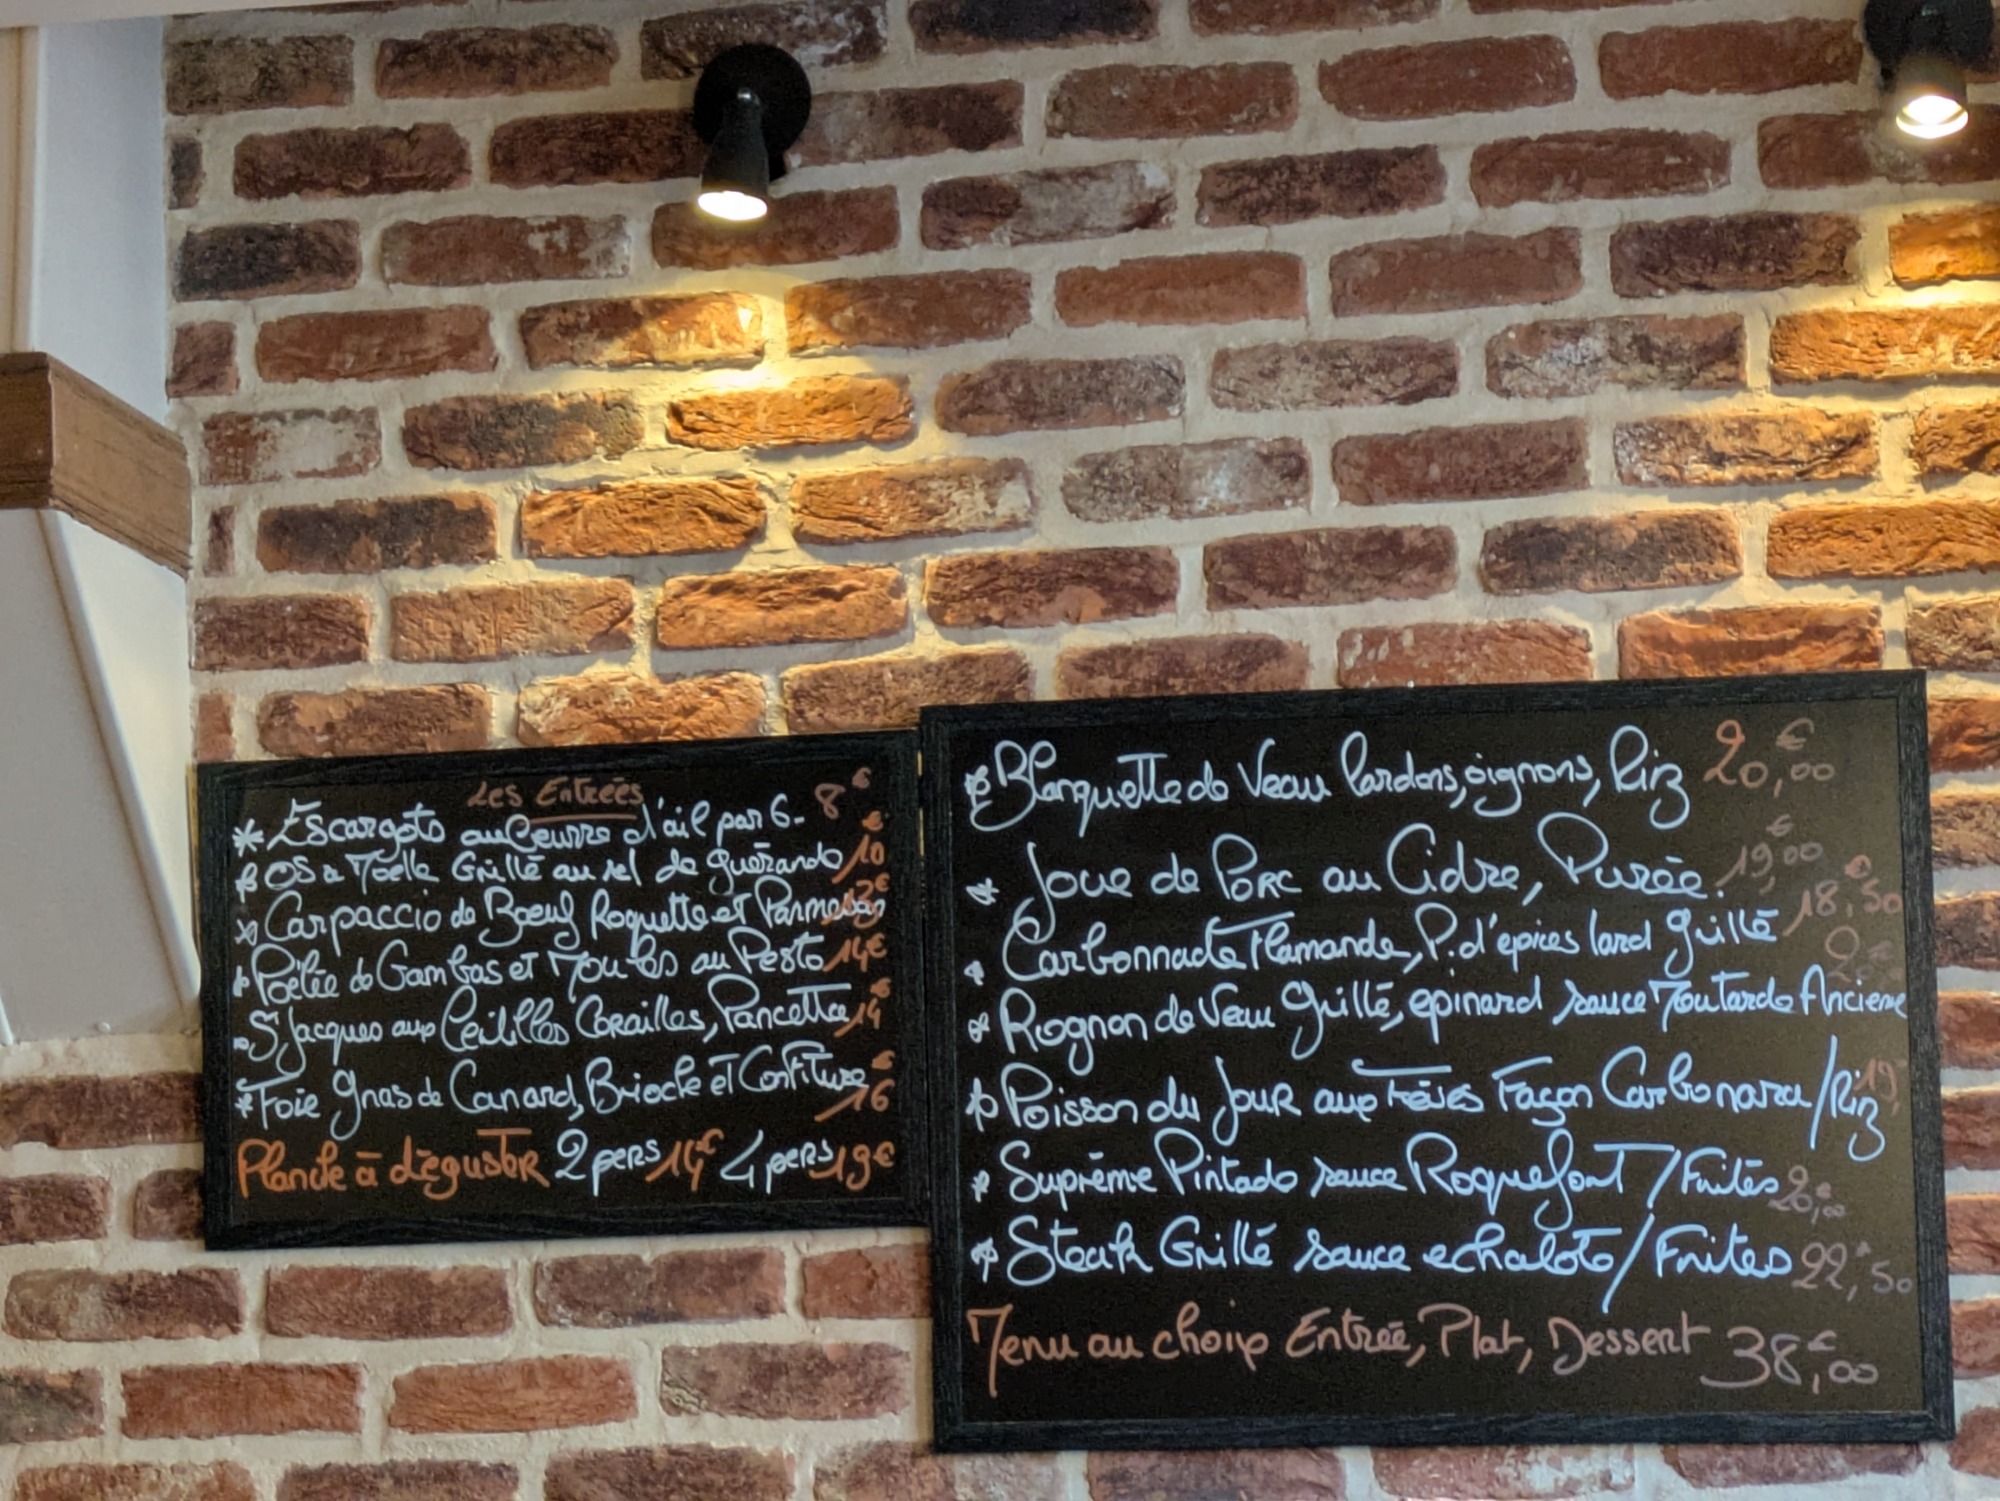 Les Entrées
* Escargots au Beurre d'ail par 6- 8€
* OS a Moelle Grillé au sel de guérande 10€
* Carpaccio de Bœuf Roquette et Parmesan 13€
* Poêlée de Gambas et Moules au Pesto 14€
* St Jacques aux Lentilles Corailles, Pancetta 14€
* Foie gras de Canard, Brioche et Confiture 16€
Planche à déguster 2 pers 14€ 4 pers 19€
* Blanquette de Veau lardons, oignons, Riz 20,00€
* Joue de Porc au Cidre, Purée. 19,00€
* Carbonnade Flamande, P. d'epices lard grillé 18,50€
* Rognon de Veau grillé, epinard sauce Moutarde Ancienne
* Poisson du Jour aux Fèves Façon Carbonara / Riz 19
* Suprême Pintade sauce Roquefort / Frites 20,00€
* Steak Grillé sauce echalote / Frites 22,50
Menu au choix Entrée, Plat, Dessert 38,00€